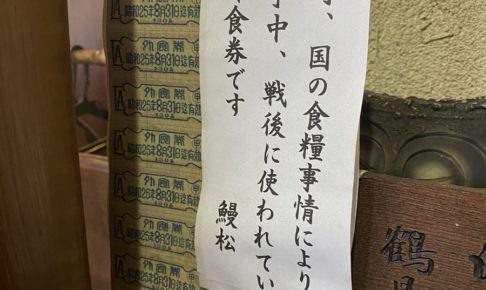 、国の食糧事情により
中、戦後に使われてい
食券です
鰻松
昭和25年8月31日迄有効
外食券
昭和25年8月31日迄有効
外食券
昭和25年8月31日迄有効
外食券
昭和25年8月31日迄有効
外食券
昭和25年8月31日迄有効
外食券
昭和25年8月31日迄有効
外食券
昭和25年8月31日迄有効
鶴